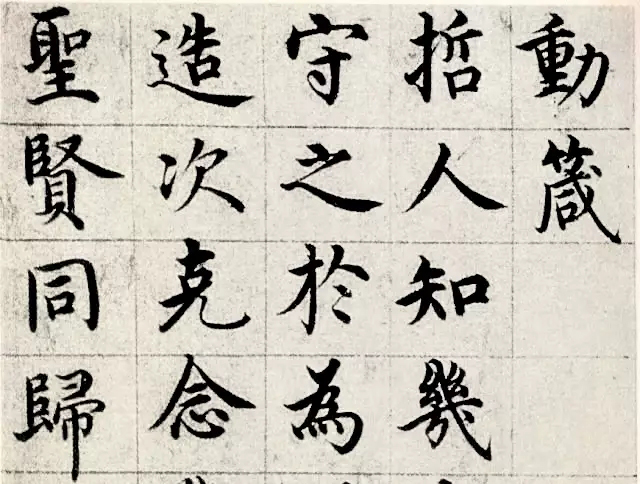 動箴
哲人知幾
守之於為
造次克念
聖賢同歸